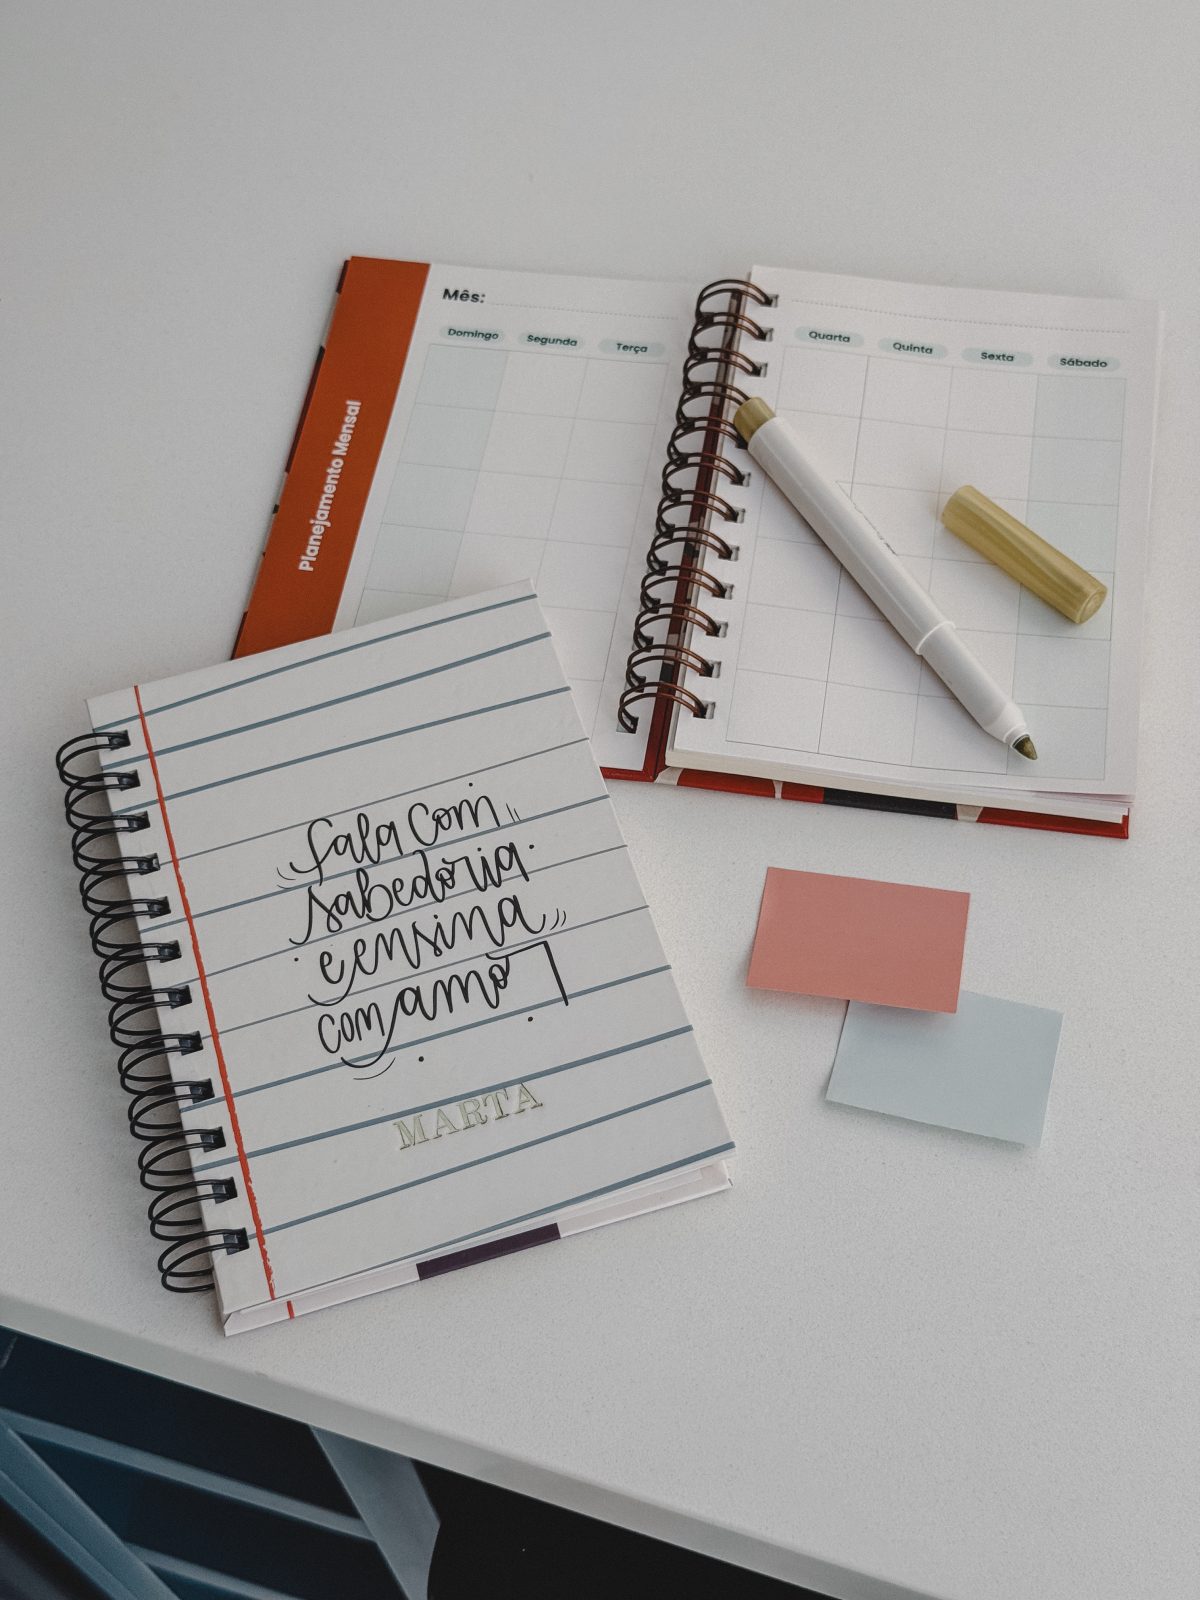 Mês:
Domingo Segunda Terça Quarta Quinta Sexta Sábado
Planejamento Mensal
fala com
sabedoria
e ensina
com amor
MARTA